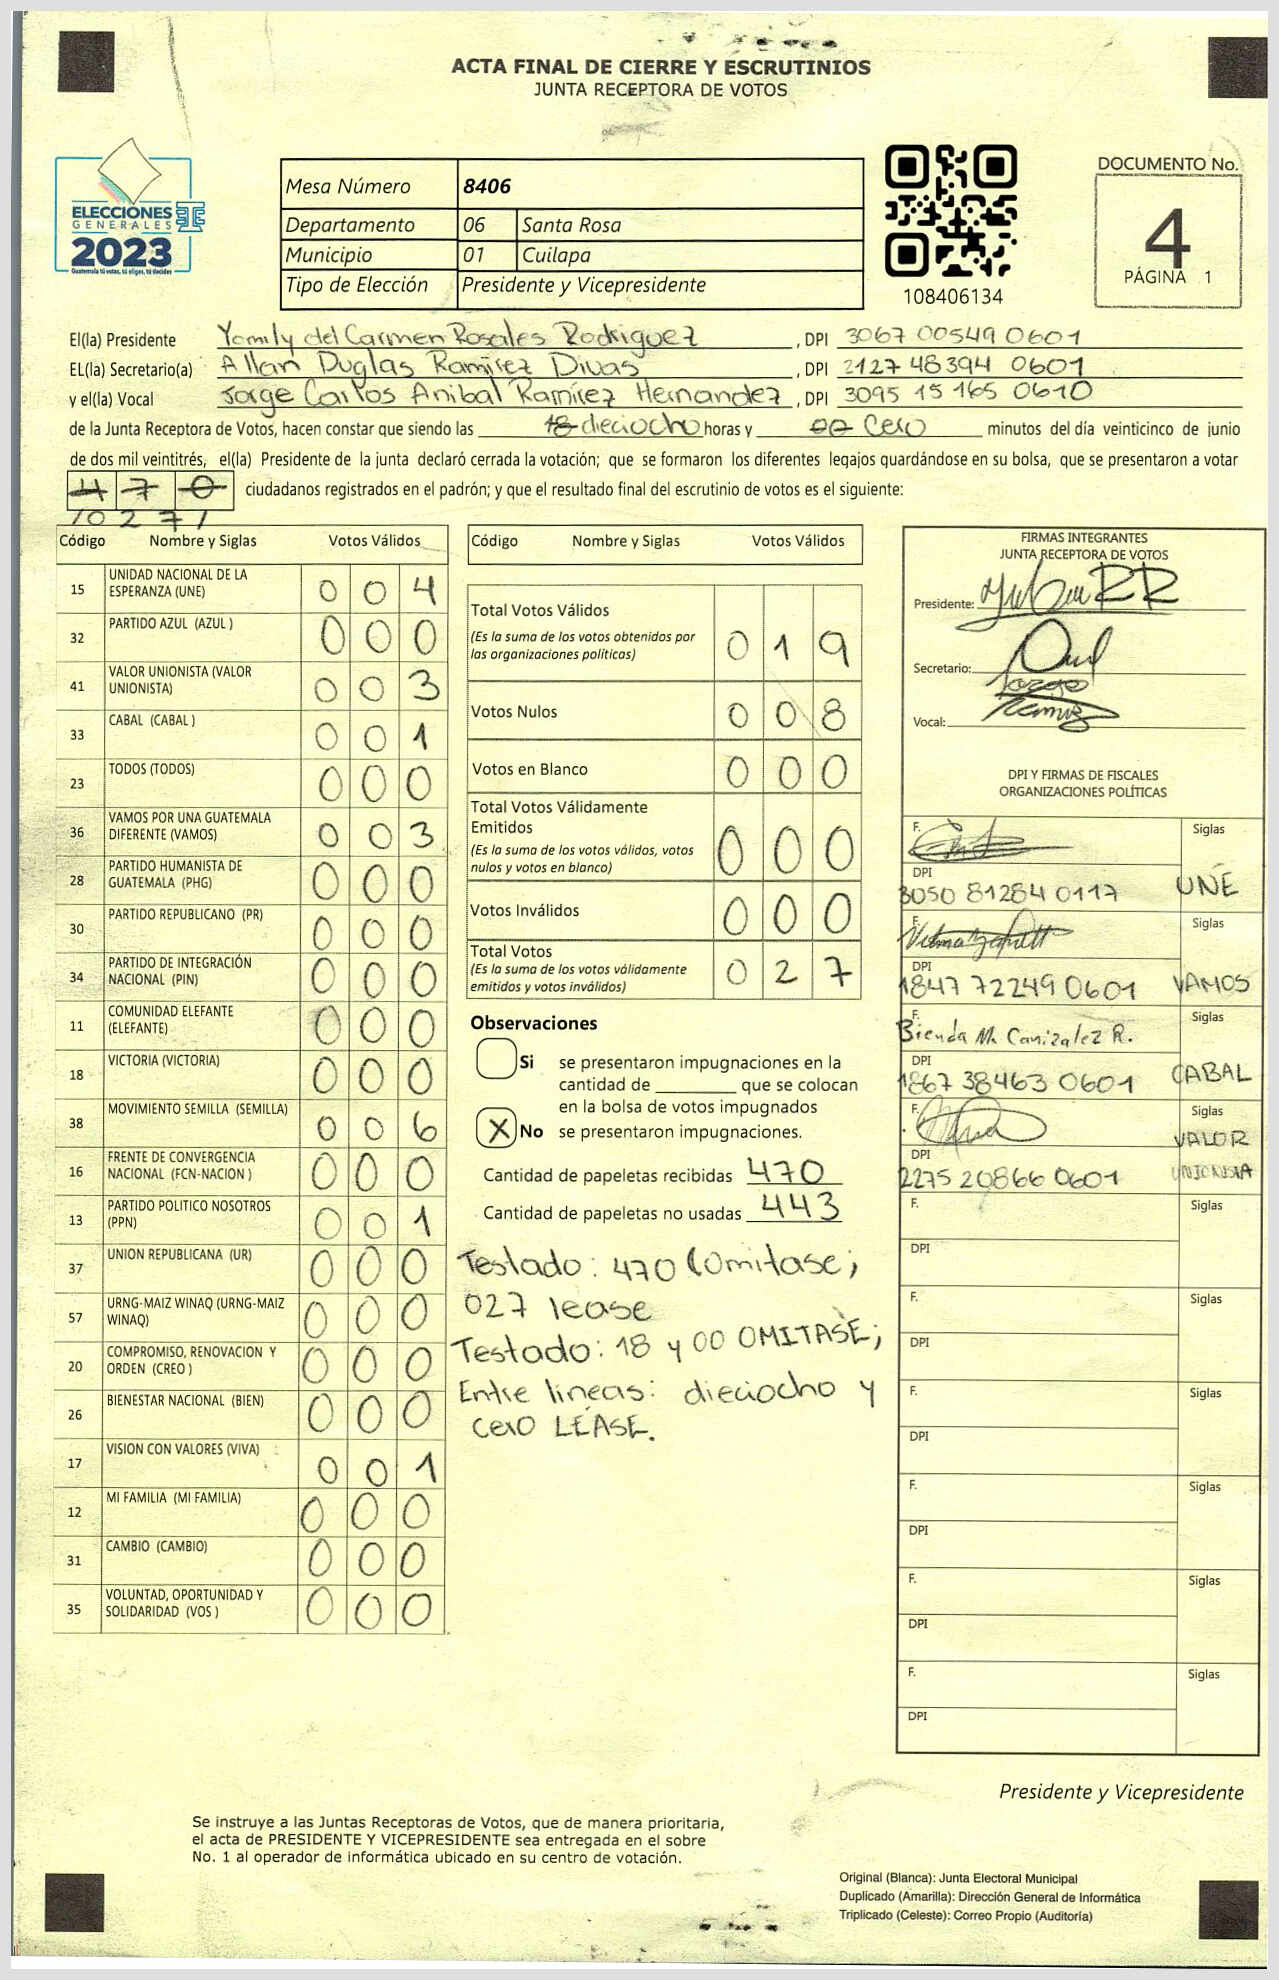 ACTA FINAL DE CIERRE Y ESCRUTINIOS
JUNTA RECEPTORA DE VOTOS
ELECCIONES
GENERALES
2023
Guatemala tú votas, tú eliges, tú decides
Mesa Número 8406
Departamento 06 Santa Rosa
Municipio 01 Cuilapa
Tipo de Elección Presidente y Vicepresidente
108406134
DOCUMENTO No.
4
PÁGINA 1
El(la) Presidente Yomily del Carmen Rosales Rodriguez, DPI 3067 00549 0601
EL(la) Secretario(a) Allan Duglas Ramírez Divas, DPI 2127 48394 0601
y el(la) Vocal Jorge Carlos Anibal Ramírez Hernandez, DPI 3095 15165 0610
de la Junta Receptora de Votos, hacen constar que siendo las 18 dieciocho horas y 00 cero minutos del día veinticinco de junio
de dos mil veintitrés, el(la) Presidente de la junta declaró cerrada la votación; que se formaron los diferentes legajos guardándose en su bolsa, que se presentaron a votar
4 7 0 ciudadanos registrados en el padrón; y que el resultado final del escrutinio de votos es el siguiente:
/0 2 7/
Código Nombre y Siglas Votos Válidos
15 UNIDAD NACIONAL DE LA
ESPERANZA (UNE) 0 0 4
32 PARTIDO AZUL (AZUL ) 0 0 0
41 VALOR UNIONISTA (VALOR
UNIONISTA) 0 0 3
33 CABAL (CABAL ) 0 0 1
23 TODOS (TODOS) 0 0 0
36 VAMOS POR UNA GUATEMALA
DIFERENTE (VAMOS) 0 0 3
28 PARTIDO HUMANISTA DE
GUATEMALA (PHG) 0 0 0
30 PARTIDO REPUBLICANO (PR) 0 0 0
34 PARTIDO DE INTEGRACIÓN
NACIONAL (PIN) 0 0 0
11 COMUNIDAD ELEFANTE
(ELEFANTE) 0 0 0
18 VICTORIA (VICTORIA) 0 0 0
38 MOVIMIENTO SEMILLA (SEMILLA) 0 0 6
16 FRENTE DE CONVERGENCIA
NACIONAL (FCN-NACION ) 0 0 0
13 PARTIDO POLITICO NOSOTROS
(PPN) 0 0 1
37 UNION REPUBLICANA (UR) 0 0 0
57 URNG-MAIZ WINAQ (URNG-MAIZ
WINAQ) 0 0 0
20 COMPROMISO, RENOVACION Y
ORDEN (CREO ) 0 0 0
26 BIENESTAR NACIONAL (BIEN) 0 0 0
17 VISION CON VALORES (VIVA) 0 0 1
12 MI FAMILIA (MI FAMILIA) 0 0 0
31 CAMBIO (CAMBIO) 0 0 0
35 VOLUNTAD, OPORTUNIDAD Y
SOLIDARIDAD (VOS ) 0 0 0
Código Nombre y Siglas Votos Válidos
Total Votos Válidos
(Es la suma de los votos obtenidos por
las organizaciones políticas) 0 1 9
Votos Nulos 0 0 8
Votos en Blanco 0 0 0
Total Votos Válidamente
Emitidos
(Es la suma de los votos válidos, votos
nulos y votos en blanco) 0 0 0
Votos Inválidos 0 0 0
Total Votos
(Es la suma de los votos válidamente
emitidos y votos inválidos) 0 2 7
Observaciones
Si se presentaron impugnaciones en la
cantidad de ________ que se colocan
en la bolsa de votos impugnados
X No se presentaron impugnaciones.
Cantidad de papeletas recibidas 470
Cantidad de papeletas no usadas 443
Testado: 470 Omitase;
027 lease
Testado: 18 y 00 OMITASE;
Entre lineas: dieciocho y
cero LÉASE.
FIRMAS INTEGRANTES
JUNTA RECEPTORA DE VOTOS
Presidente:
Secretario:
Jorge
Ramirez
Vocal:
DPI Y FIRMAS DE FISCALES
ORGANIZACIONES POLÍTICAS
F. Siglas
DPI
3050 81284 0117 UNE
F. Siglas
DPI
1847 72249 0601 VAMOS
F. Siglas
Bienda M. Canizalez R.
DPI
1867 38463 0601 CABAL
F. Siglas
VALOR
DPI
2275 20866 0601 UNIONISTA
F. Siglas
DPI
F. Siglas
DPI
F. Siglas
DPI
F. Siglas
DPI
F. Siglas
DPI
F. Siglas
DPI
Presidente y Vicepresidente
Se instruye a las Juntas Receptoras de Votos, que de manera prioritaria,
el acta de PRESIDENTE Y VICEPRESIDENTE sea entregada en el sobre
No. 1 al operador de informática ubicado en su centro de votación.
Original (Blanca): Junta Electoral Municipal
Duplicado (Amarilla): Dirección General de Informática
Triplicado (Celeste): Correo Propio (Auditoría)